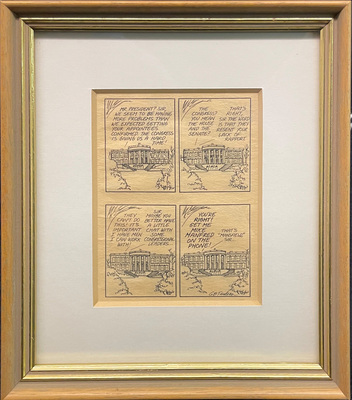 MR. PRESIDENT? SIR,
WE SEEM TO BE HAVING
MORE PROBLEMS THAN
WE EXPECTED GETTING
YOUR APPOINTEES
CONFIRMED. THE CONGRESS
IS GIVING US A HARD
TIME!
THE
CONGRESS?
YOU MEAN
THE HOUSE
AND THE
SENATE?
THAT'S
RIGHT,
SIR. THE WORD
IS THAT THEY
RESENT YOUR
LACK OF
RAPPORT
THEY
CAN'T DO
THAT! IT'S
IMPORTANT
I HAVE MEN
I CAN WORK
WITH!
WE
MAYBE YOU
BETTER HAVE
A LITTLE
CHAT WITH
SOME
CONGRESSIONAL
LEADERS.
YOU'RE
RIGHT!
GET ME
MIKE
MANFRED
ON THE
PHONE!
THAT'S
"MANSFIELD",
SIR..